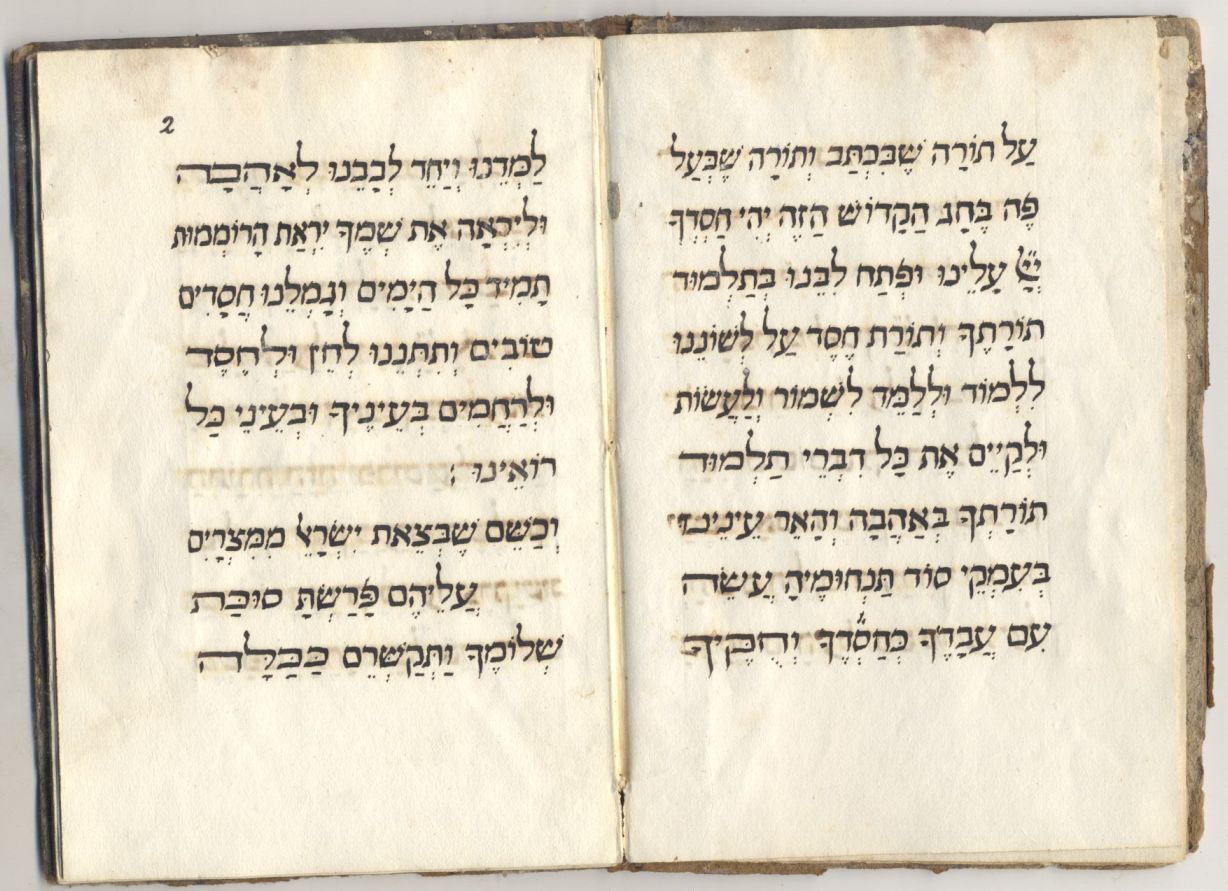 עַל תוֹרָה שֶׁבִּכְתַּב וְתוֹרָה שֶׁבְּעַל
פֶּה בֶּחָג הַקָדוֹשׁ הַזֶה יְהִי חַסְדְךָ
עָלֵינוּ וּפְתַח לִבֵּנוּ בְּתַלְמוּד
תוֹרָתֶךָ וְתוֹרַת חֶסֶד עַל לְשׁוֹנֵנוּ
לִלְמוֹד וּלְלַמֵּד לִשְׁמוֹר וְלַעֲשׂוֹת
וּלְקַיֵים אֶת כָּל דִבְרֵי תַלְמוּד
תוֹרָתְךָ בְּאַהֲבָה וְהָאֵר עֵינֵינוּ
בְּעִמְקֵי סוֹד תַּנְחוּמֶיהָ עֲשֵׂה
עִם עֲבָדֶךָ כְּחַסְדֶךָ וְחֻקֶיךָ
2
לַמְּדֵנוּ וְיַחֵד לְבָבֵנוּ לְאַהֲבָה
וּלְיִרְאָה אֶת שְׁמֶךָ יִרְאַת הָרוֹמְמוּת
תָמִיד כָּל הַיָמִים וְגָמְלֵנוּ חֲסָדִים
טוֹבִים וְתִתְּנֵנוּ לְחֵן וּלְחֶסֶד
וּלְרַחֲמִים בְּעֵינֶיךָ וּבְעֵינֵי כָּל
רוֹאֵינוּ :
וְכַשֵׁם שֶׁבְּצֵאת יִשְׂרָאֵל מִמִצְרָיִם
עֲלֵיהֶם פָּרַשְׂתָּ סוּכַּת
שְׁלוֹמֶךָ וַתְּקַשְּׁרֵם כַּכַּלָה